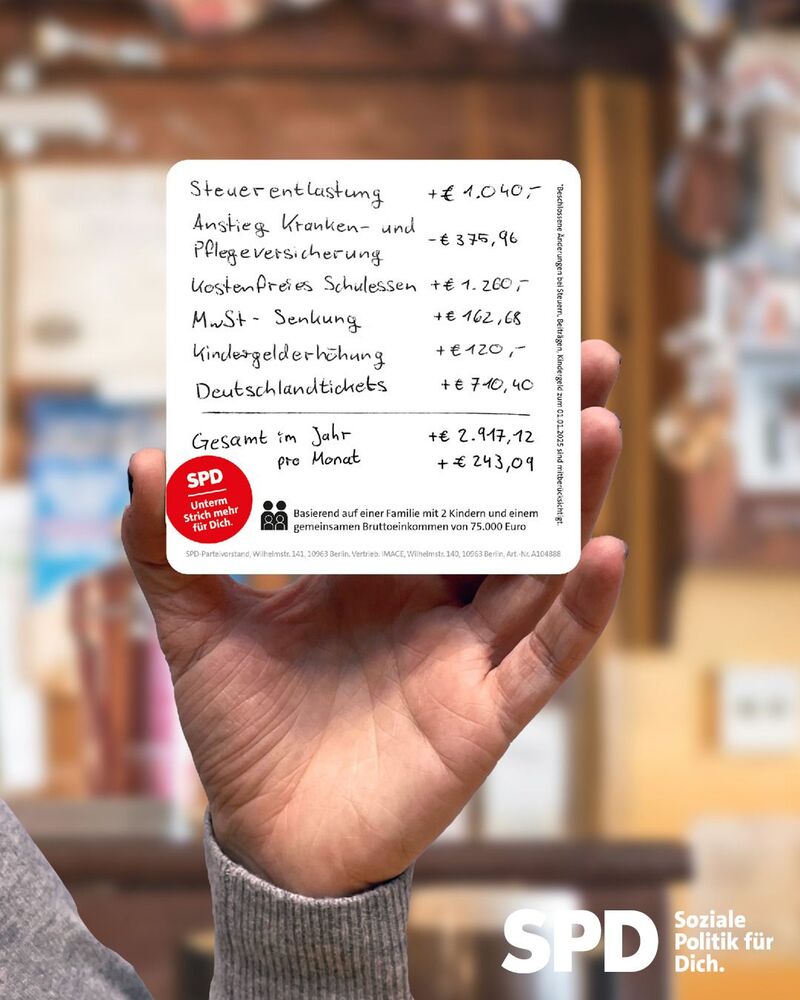 Steuerentlastung +€ 1.040,-
Anstieg Kranken- und
Pflegeversicherung -€ 375,96
Kostenfreies Schulessen +€ 1.260,-
MwSt- Senkung +€ 162,68
Kindergelderhöhung +€ 120,-
Deutschlandtickets +€ 710,40
Gesamt im Jahr +€ 2.917,12
pro Monat +€ 243,09
*Beschlossene Änderungen bei Steuern, Beiträgen, Kindergeld zum 01.01.2025 sind mitberücksichtigt.
SPD
Unterm
Strich mehr
für Dich.
Basierend auf einer Familie mit 2 Kindern und einem
gemeinsamen Bruttoeinkommen von 75.000 Euro
SPD-Parteivorstand, Wilhelmstr. 141, 10963 Berlin. Vertrieb: IMAGE, Wilhelmstr. 140, 10963 Berlin, Art.-Nr. A104888
SPD
Soziale
Politik für
Dich.